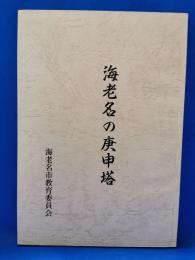 海老名の庚申塔
海老名市教育委員会